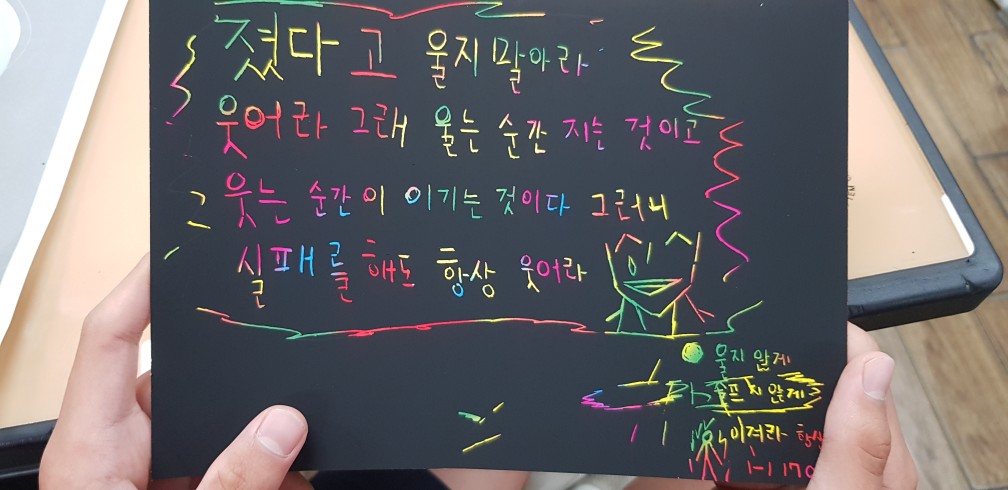 졌다고 울지말아라
웃어라 그래 울는 순간 지는 것이고
웃는 순간이 이기는 것이다 그러니
실패를 해도 항상 웃어라
울지 않게
슬프지 않게
이겨라 항상